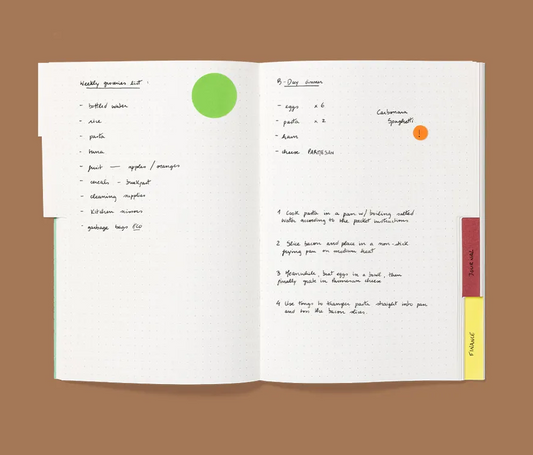 Weekly groceries list :
- bottled water
- rice
- pasta
- tuna
- fruit — apples / oranges
- cereals - breakfast
- cleaning supplies
- Kitchen scissors
- garbage bags ECO
B-Day dinner
- eggs x 6
- pasta x 2
- ham
- cheese PARMESAN
Carbonara
Spaghetti
!
1 Cook pasta in a pan w/ boiling salted
water according to the packet instructions
2 Slice bacon and place in a non-stick
frying pan on medium heat
3 Meanwhile, beat eggs in a bowl, then
finally grate in Parmesan cheese
4 Use tongs to transfer pasta straight into pan
and toss the bacon slices.
JOURNAL
FINANCE